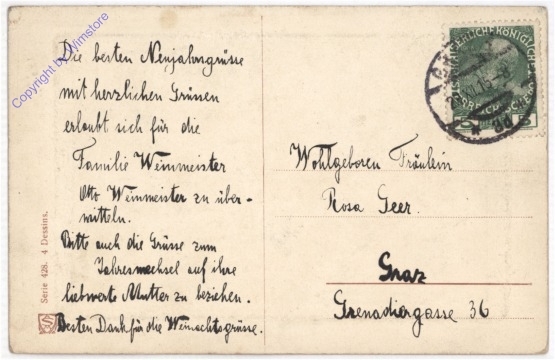 Copyright by Wimstore
Die besten Neujahrsgrüsse
mit herzlichen Grüssen
erlaubt sich für die
Familie Weinmeister
Otto Weinmeister zu über-
mitteln.
Bitte auch die Grüsse zum
Jahreswechsel auf ihre
liebwerte Mutter zu beziehen.
Besten Dank für die Weinachtsgrüsse.
Serie 428. 4 Dessins.
Wohlgeboren Fräulein
Rosa Geer.
Graz
Grenadiergasse 36